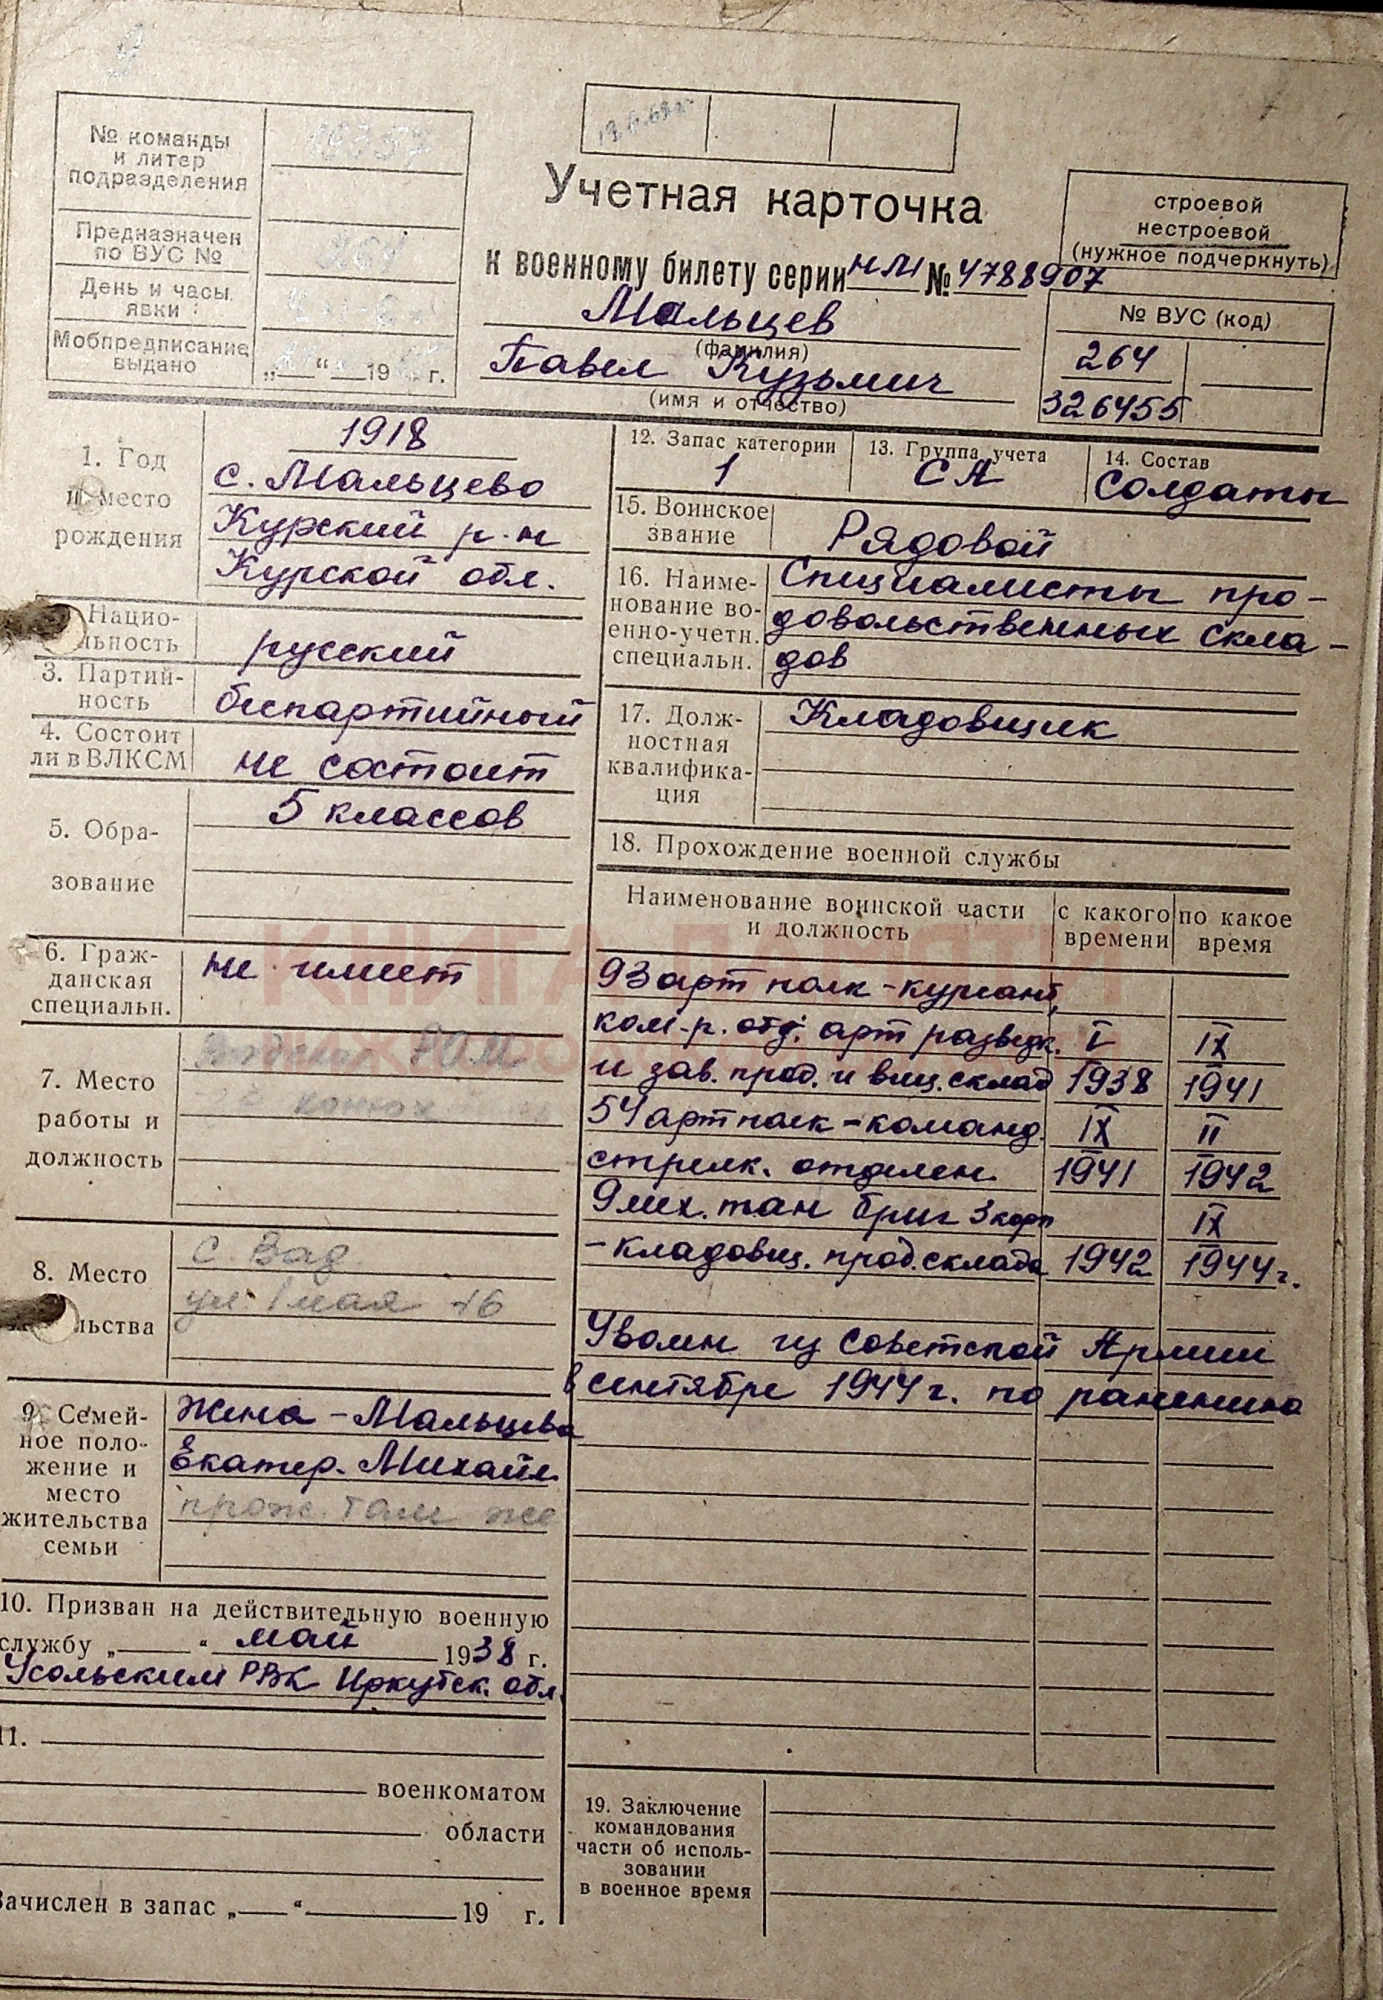 № команды
и литер
подразделения
Предназначен
по ВУС №
264
День и часы
явки
Мобпредписание
выдано
„ “ 19 г.
Учетная карточка
к военному билету серии НЛ № 4788907
Мальцев
(фамилия)
Павел Кузьмич
(имя и отчество)
строевой
нестроевой
(нужное подчеркнуть)
№ ВУС (код)
264
326455
1. Год
и место
рождения
1918
с. Мальцево
Курский р-н
Курской обл.
Нацио-
льность
русский
3. Партий-
ность
беспартийный
4. Состоит
ли в ВЛКСМ
не состоит
5. Обра-
зование
5 классов
6. Граж-
данская
специальн.
не имеет
7. Место
работы и
должность
8. Место
льства
с. Вад
ул. 1 мая
9. Семей-
ное поло-
жение и
место
жительства
семьи
Жена - Мальцева
Екатер. Михайл.
прож. там же
10. Призван на действительную военную
службу „ “ май 1938 г.
Усольским РВК Иркутск. обл.
11.
военкоматом
области
Зачислен в запас „ “ 19 г.
12. Запас категории
1
13. Группа учета
СА
14. Состав
Солдаты
15. Воинское
звание
Рядовой
16. Наиме-
нование во-
енно-учетн.
специальн.
Специалисты про-
довольственных скла-
дов
17. Долж-
ностная
квалифика-
ция
Кладовщик
18. Прохождение военной службы
Наименование воинской части
и должность
с какого
времени
по какое
время
93 арт полк - курсант,
ком-р. отд. арт разведк. V IX
и зав. прод. и вещ. склад 1938 1941
54 арт полк - команд. IX II
стрелк. отделен. 1941 1942
9 мех. тан бриг 3 корп IX
- кладовщ. прод. склада 1942 1944 г.
Уволен из Советской Армии
в сентябре 1944 г. по ранению
19. Заключение
командования
части об исполь-
зовании
в военное время
КНИГА ПАМЯТИ